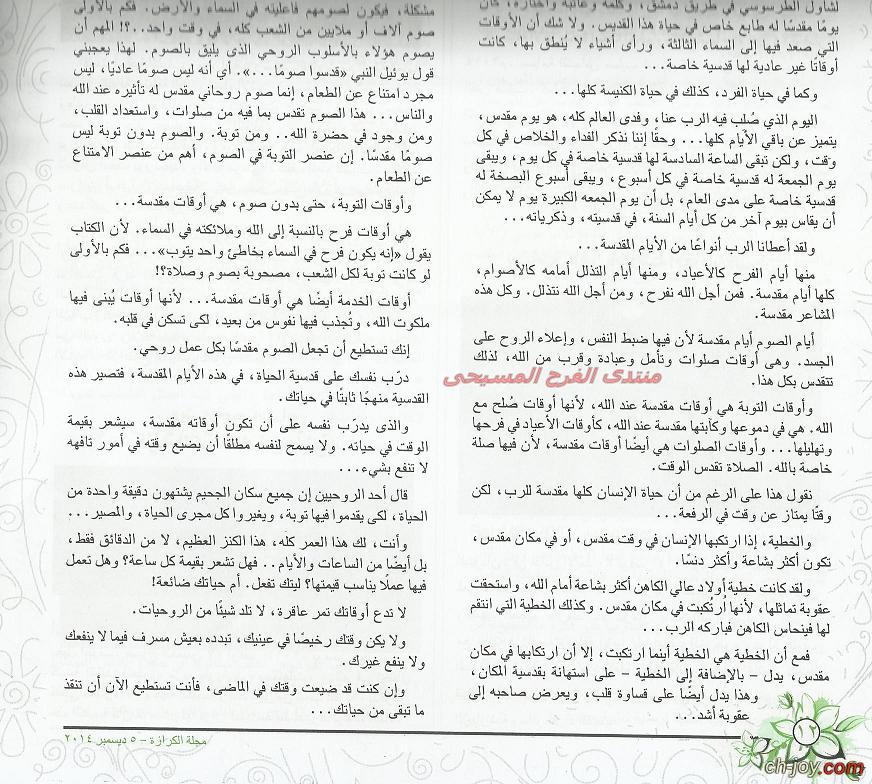 لشاول الطرسوسي في طريق دمشق، وكلمه وعاتبه واختاره، كان
يومًا مقدسًا له طابع خاص في حياة هذا القديس. ولا شك أن الأوقات
التي صعد فيها إلى السماء الثالثة، ورأى أشياء لا يُنطق بها، كانت
أوقاتًا غير عادية لها قدسية خاصة...
وكما في حياة الفرد، كذلك في حياة الكنيسة كلها...
اليوم الذي صُلب فيه الرب عنا، وفدى العالم كله، هو يوم مقدس،
يتميز عن باقي الأيام كلها... وحقًا إننا نذكر الفداء والخلاص في كل
وقت، ولكن تبقى الساعة السادسة لها قدسية خاصة في كل يوم، ويبقى
يوم الجمعة له قدسية خاصة في كل أسبوع، ويبقى أسبوع البصخة له
قدسية خاصة على مدى العام، بل أن يوم الجمعه الكبيرة يوم لا يمكن
أن يقاس بيوم آخر من كل أيام السنة، في قدسيته، وذكرياته...
ولقد أعطانا الرب أنواعًا من الأيام المقدسة...
منها أيام الفرح كالأعياد، ومنها أيام التذلل أمامه كالأصوام،
كلها أيام مقدسة. فمن أجل الله نفرح، ومن أجل الله نتذلل. وكل هذه
المشاعر مقدسة.
أيام الصوم أيام مقدسة لأن فيها ضبط النفس، وإعلاء الروح على
الجسد. وهى أوقات صلوات وتأمل وعبادة وقرب من الله، لذلك
تتقدس بكل هذا.
وأوقات التوبة هي أوقات مقدسة عند الله، لأنها أوقات صُلح مع
الله. هي في دموعها وكآبتها مقدسة عند الله، كأوقات الأعياد في فرحها
وتهليلها... وأوقات الصلوات هي أيضًا أوقات مقدسة، لأن فيها صلة
خاصة بالله. الصلاة تقدس الوقت.
نقول هذا على الرغم من أن حياة الإنسان كلها مقدسة للرب، لكن
وقتًا يمتاز عن وقت في الرفعة...
والخطية، إذا ارتكبها الإنسان في وقت مقدس، أو في مكان مقدس،
تكون أكثر بشاعة وأكثر دنسًا.
ولقد كانت خطية أولاد عالي الكاهن أكثر بشاعة أمام الله، واستحقت
عقوبة تماثلها، لأنها ارتُكبت في مكان مقدس. وكذلك الخطية التي انتقم
لها فينحاس الكاهن فباركه الرب...
فمع أن الخطية هي الخطية أينما ارتكبت، إلا أن ارتكابها في مكان
مقدس، يدل – بالإضافة إلى الخطية – على استهانة بقدسية المكان،
وهذا يدل أيضًا على قساوة قلب، ويعرض صاحبه إلى
عقوبة أشد...
مشكلة، فيكون لصومهم فاعليته في السماء والأرض. فكم بالأولى
صوم آلاف أو ملايين من الشعب كله، في وقت واحد..؟! المهم أن
يصوم هؤلاء بالأسلوب الروحي الذى يليق بالصوم. لهذا يعجبني
قول يوئيل النبي «قدسوا صومًا...». أي أنه ليس صومًا عاديًا، ليس
مجرد امتناع عن الطعام، إنما صوم روحاني مقدس له تأثيره عند الله
والناس... هذا الصوم تقدس بما فيه من صلوات، واستعداد القلب،
ومن وجود في حضرة الله.. ومن توبة. والصوم بدون توبة ليس
صومًا مقدسًا. إن عنصر التوبة في الصوم، أهم من عنصر الامتناع
عن الطعام.
وأوقات التوبة، حتى بدون صوم، هي أوقات مقدسة...
هي أوقات فرح بالنسبة إلى الله وملائكته في السماء. لأن الكتاب
يقول «إنه يكون فرح في السماء بخاطئ واحد يتوب»... فكم بالأولى
لو كانت توبة لكل الشعب، مصحوبة بصوم وصلاة؟!
أوقات الخدمة أيضًا هي أوقات مقدسة... لأنها أوقات يُبنى فيها
ملكوت الله، وتُجذب فيها نفوس من بعيد، لكى تسكن في قلبه.
إنك تستطيع أن تجعل الصوم مقدسًا بكل عمل روحي.
درّب نفسك على قدسية الحياة، في هذه الأيام المقدسة، فتصير هذه
القدسية منهجًا ثابتًا في حياتك.
والذى يدرّب نفسه على أن تكون أوقاته مقدسة، سيشعر بقيمة
الوقت في حياته. ولا يسمح لنفسه مطلقًا أن يضيع وقته في أمور تافهه
لا تنفع بشيء...
قال أحد الروحيين إن جميع سكان الجحيم يشتهون دقيقة واحدة من
الحياة، لكى يقدموا فيها توبة، ويغيروا كل مجرى الحياة، والمصير...
وأنت، لك هذا العمر كله، هذا الكنز العظيم، لا من الدقائق فقط،
بل أيضًا من الساعات والأيام.. فهل تشعر بقيمة كل ساعة؟ وهل تعمل
فيها عملًا يناسب قيمتها؟ ليتك تفعل. أم حياتك ضائعة!
لا تدع أوقاتك تمر عاقرة، لا تلد شيئًا من الروحيات.
ولا يكن وقتك رخيصًا في عينيك، تبدده بعيش مسرف فيما لا ينفعك
ولا ينفع غيرك.
وإن كنت قد ضيعت وقتك في الماضى، فأنت تستطيع الآن أن تنقذ
ما تبقى من حياتك...
منتدى الفرح المسيحى
مجلة الكرازة – ٥ ديسمبر ٢٠١٤
ch-joy.com